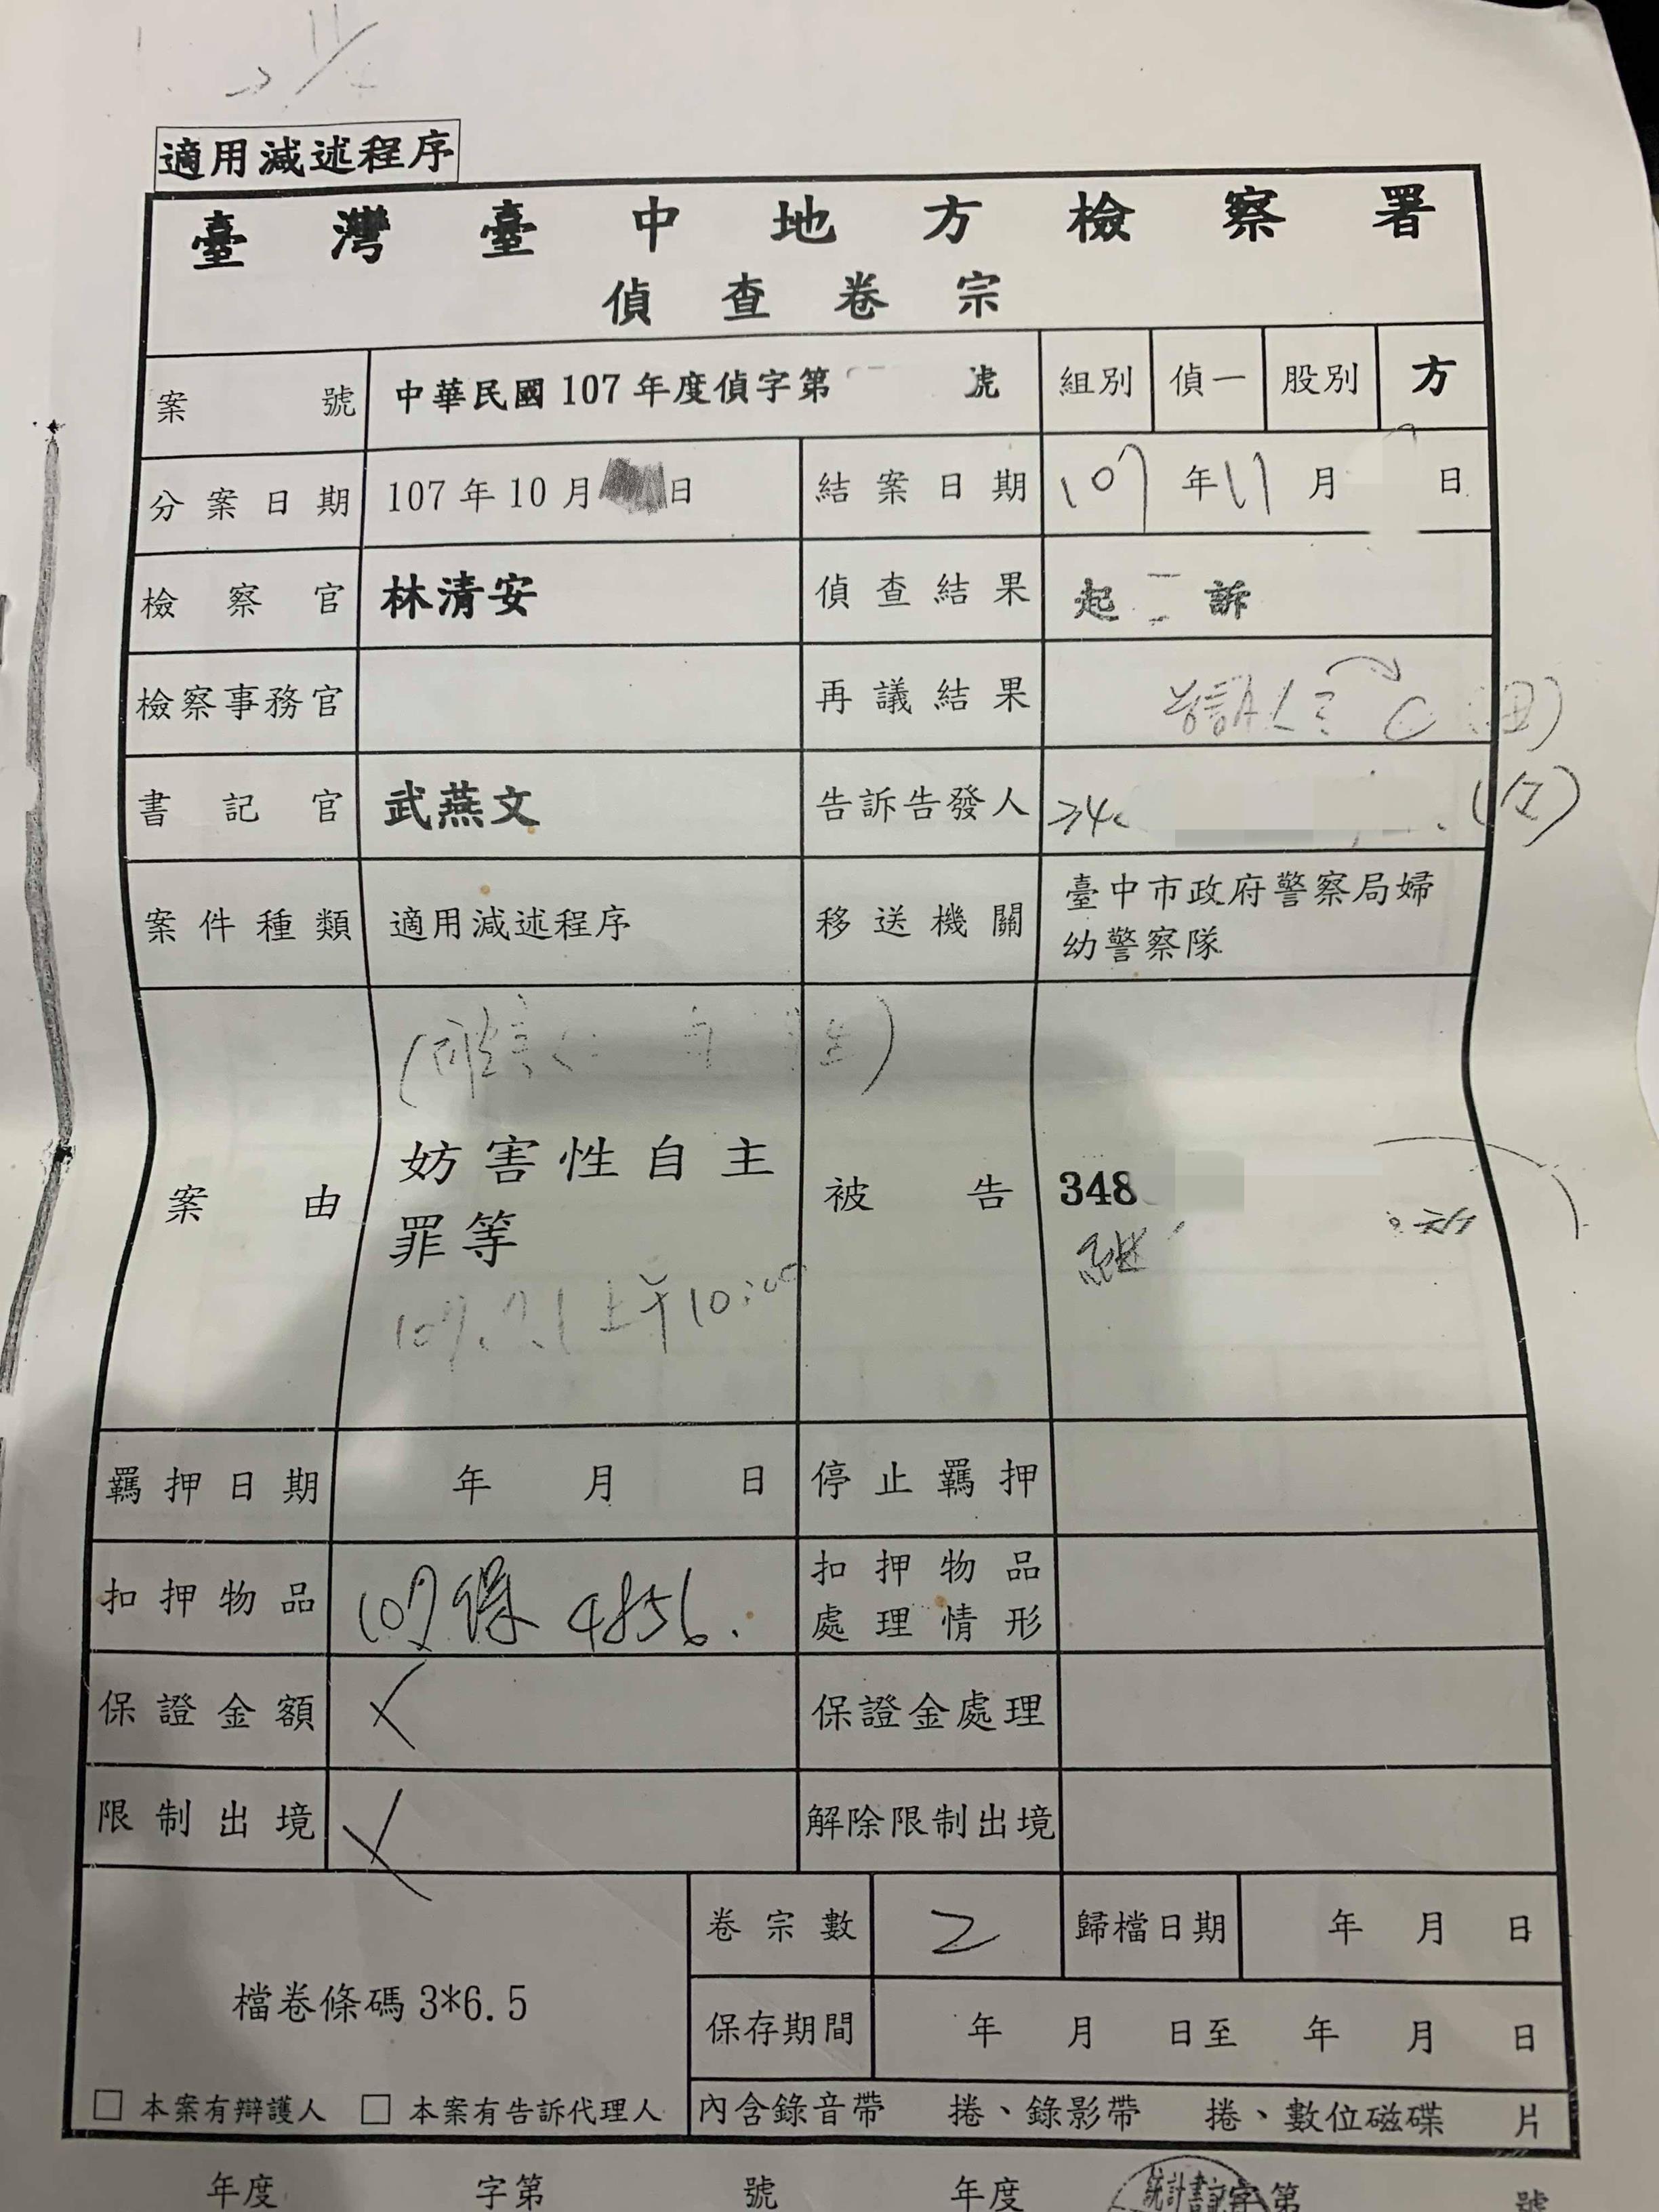 適用減述程序
臺灣臺中地方檢察署
偵查卷宗
案號 中華民國107年度偵字第 號 組別 偵一 股別 方
分案日期 107年10月 日 結案日期 107年11月 日
檢察官 林清安 偵查結果 起訴
檢察事務官 再議結果
書記官 武燕文 告訴告發人
案件種類 適用減述程序 移送機關 臺中市政府警察局婦
幼警察隊
案由 妨害性自主 被告 348
罪等
上午10:00
羈押日期 年 月 日 停止羈押
扣押物品 107保4856. 扣押物品
處理情形
保證金額 保證金處理
限制出境 解除限制出境
卷宗數 2 歸檔日期 年 月 日
檔卷條碼3*6.5
保存期間 年 月 日至 年 月 日
□ 本案有辯護人 □ 本案有告訴代理人 內含錄音帶 捲、錄影帶 捲、數位磁碟 片
年度 字第 號 年度 字第 號